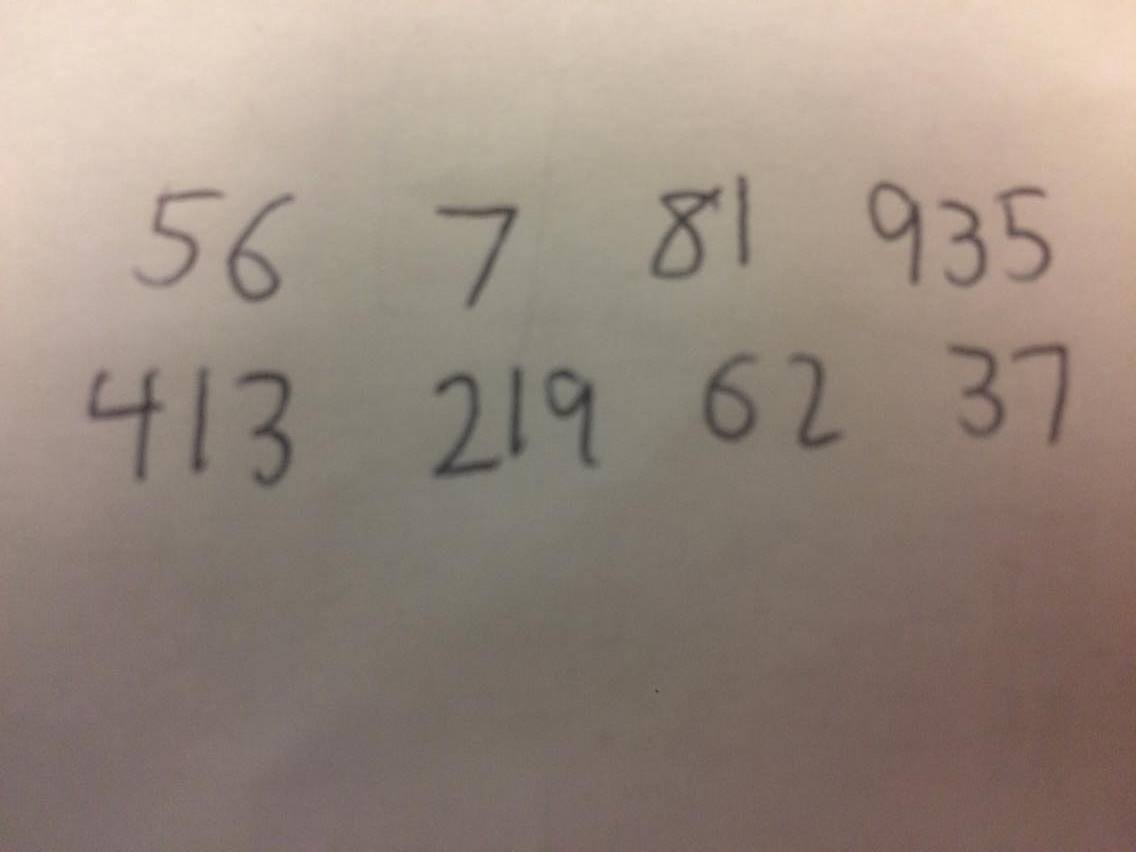 56 7 81 935
413 219 62 37